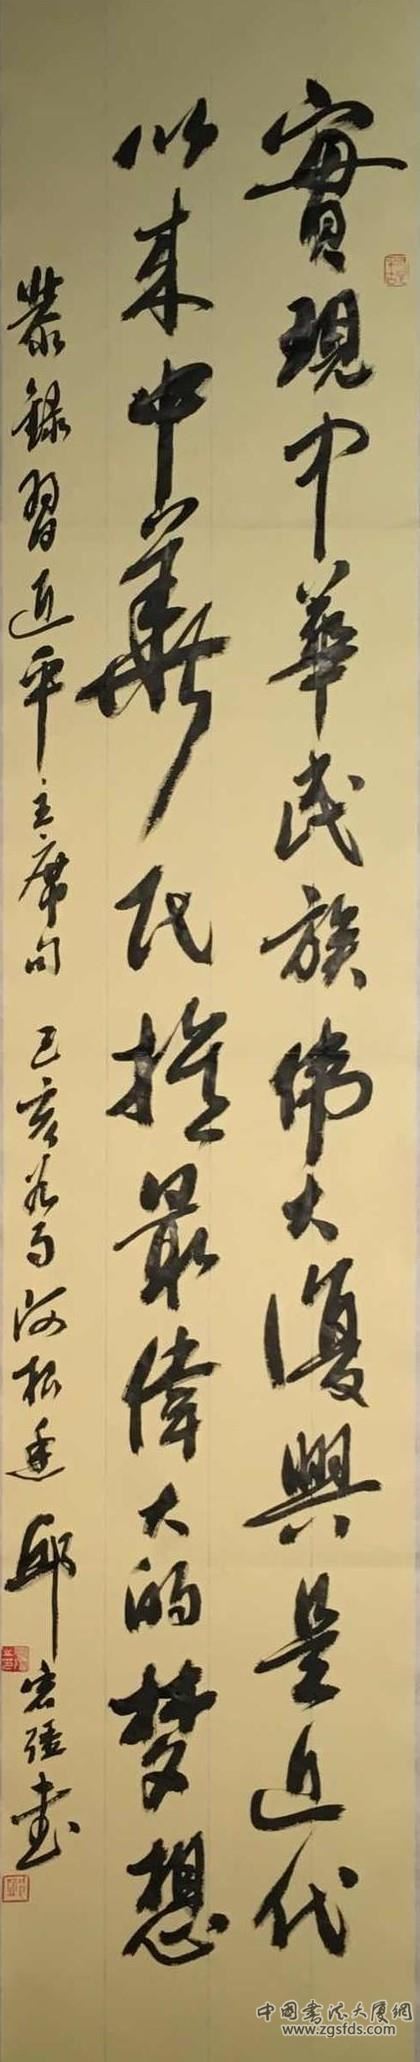 實現中華民族伟大復興是近代
以来中華民族最偉大的夢想
恭錄習近平主席句 己亥 邱宏强書
中国书法大厦網
www.zgsfds.com